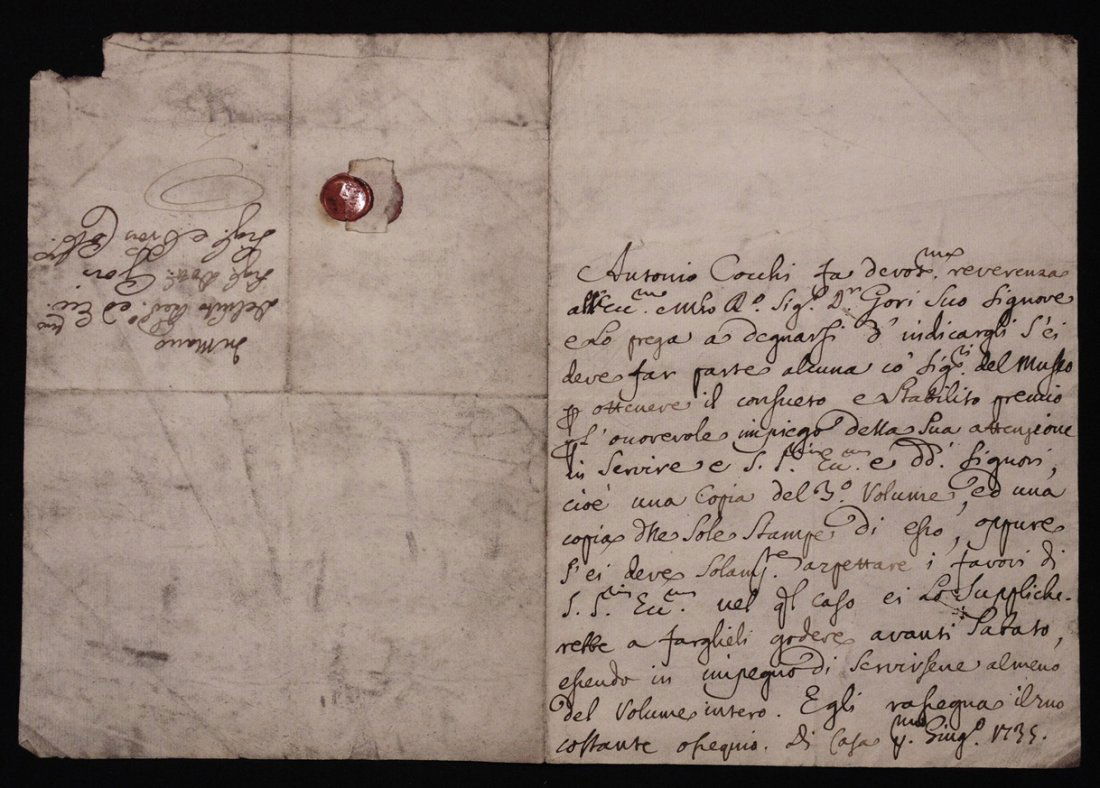 Antonio Cocchi fa devot.ma reverenza
all'Ecc.mo e Mlto R.o Sig.r D.r Gori Suo Signore
e Lo prega a degnarsi d'indicargli s'ei
deve far parte alcuna co' Sig.ri del Museo
p ottenere il consueto e stabilito premio
p l'onorevole impiego della Sua attenzione
in Servire e S. S. Ecc.ma e dd. Signori,
cioè una Copia del 3.o Volume, ed una
copia dlle Sole Stampe di esso, oppure
s'ei deve Solam.te aspettare i favori di
S. S. Ecc.ma. nel ql caso ei Lo Suppliche-
rebbe a farglieli godere avanti Sabato,
essendo in impegno di servirsene almeno
del Volume intero. Egli rassegna il suo
costante ossequio. Di Casa Giug.o 1735.
In Mano
Sig.r Dott. Gori